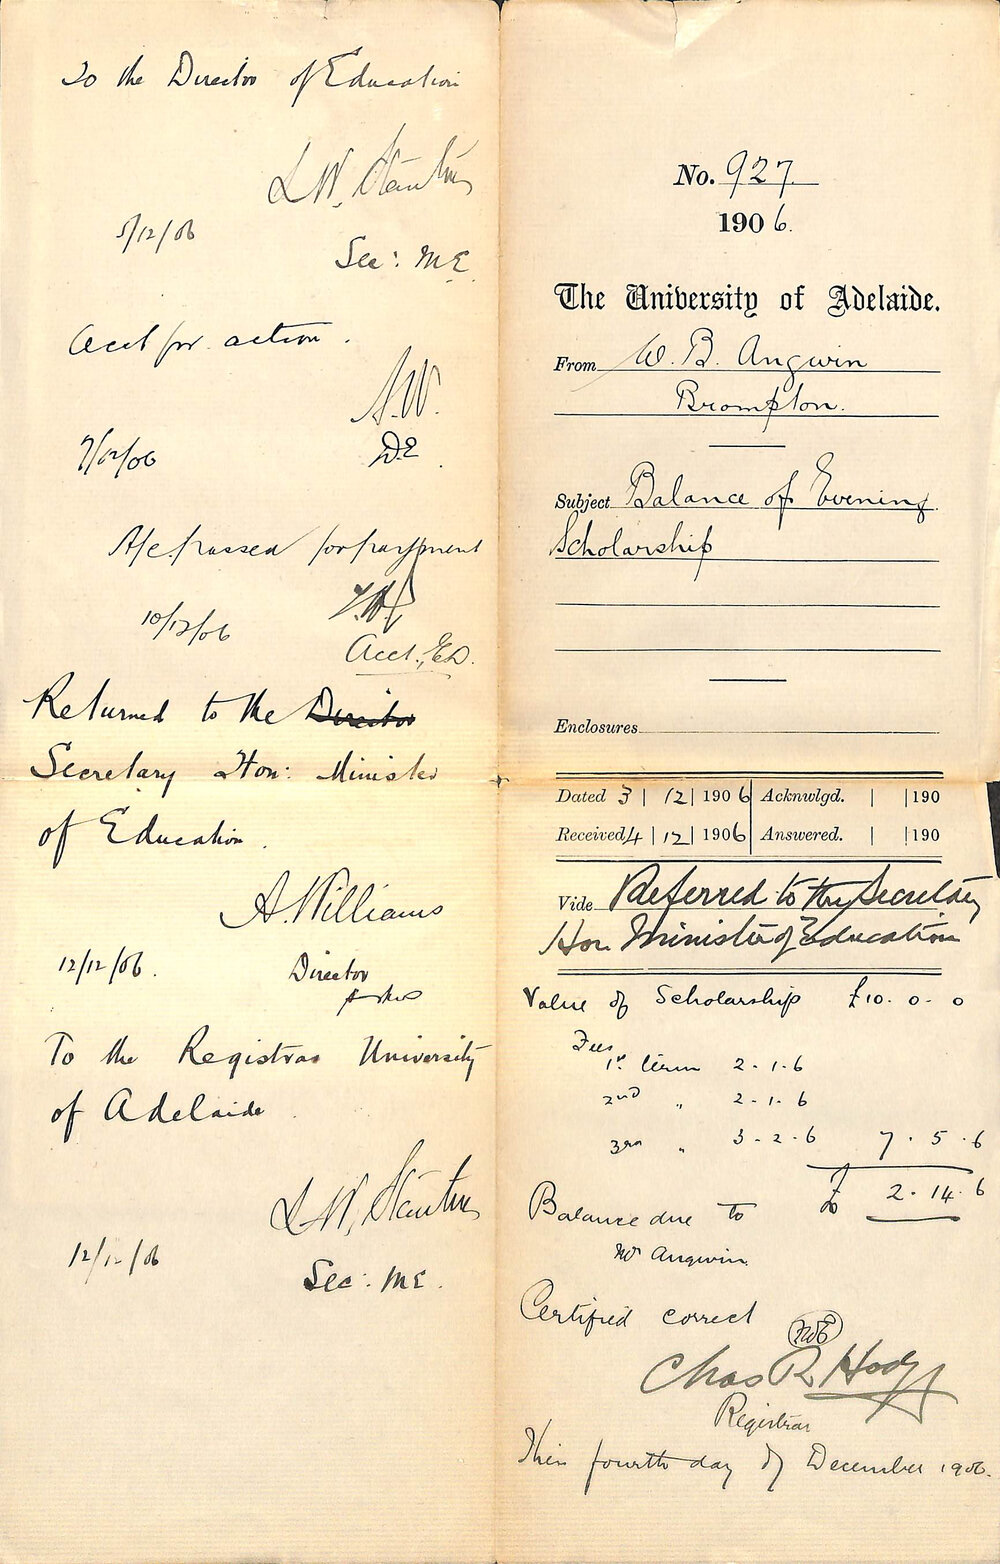 To the Director of Education
L.W. Stanton
5/12/06
Sec: M.E.
Acct for action.
A.W.
7/12/06
D.E.
A/c. passed for payment
10/12/06
Acct., E.D.
Returned to the Director
Secretary Hon: Minister
of Education.
A. Williams
12/12/06.
Director
To the Registrar University
of Adelaide
L.W. Stanton
12/12/06
Sec: M.E.
No. 927.
1906.
The University of Adelaide.
From W. B. Angwin
Brompton.
Subject Balance of Evening
Scholarship
Enclosures
Dated 3 | 12 | 1906 Acknwlgd. | | 190
Received 4 | 12 | 1906 Answered. | | 190
Vide Referred to the Secretary
Hon Minister of Education
Value of Scholarship £10. 0. 0
Fees
1st term 2. 1. 6
2nd " 2. 1. 6
3rd " 3. 2. 6 7. 5. 6
Balance due to £ 2. 14. 6
Mr Angwin
Certified correct
Chas R Hodge
Registrar
This fourth day of December 1906.